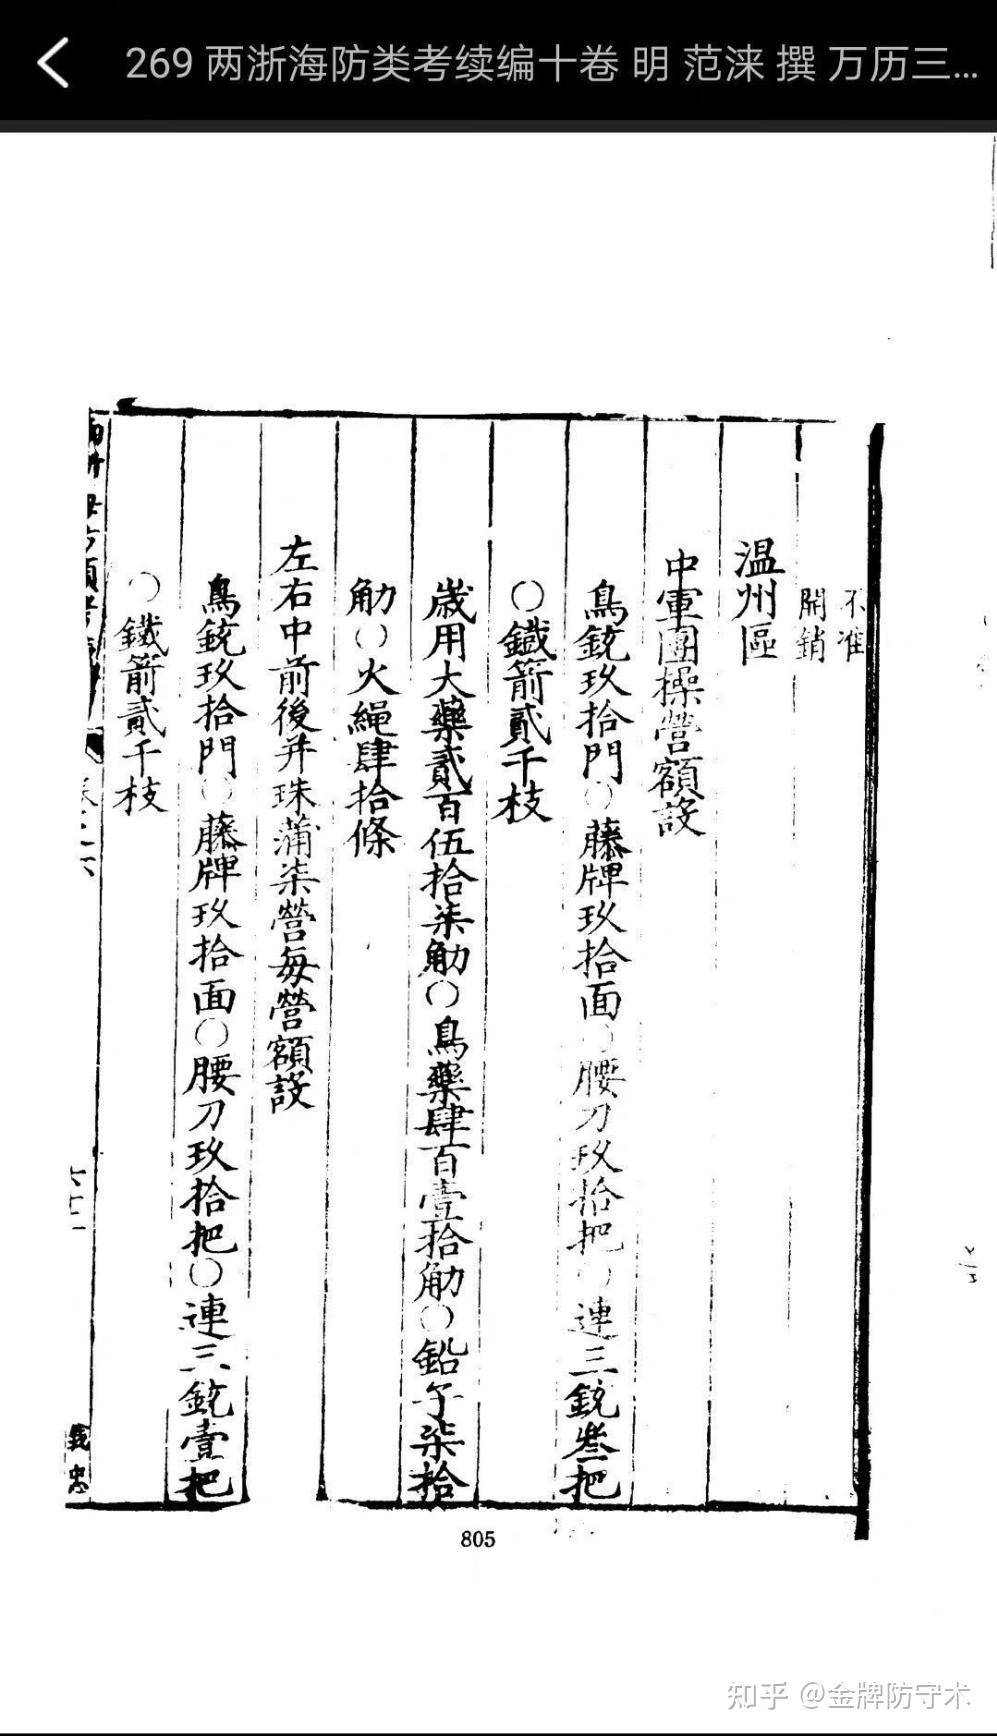 269 两浙海防类考续编十卷 明 范涞 撰 万历三...
不准
開銷
温州區
中軍團操營額設
鳥銃玖拾門○藤牌玖拾面○腰刀玖拾把○連三銃叁把
○鐵箭貳千枝
歲用大藥貳百伍拾柒觔○鳥藥肆百壹拾觔○鉛子柒拾
觔○火繩肆拾條
左右中前後并珠蒲柒營每營額設
鳥銃玖拾門○藤牌玖拾面○腰刀玖拾把○連三銃壹把
○鐵箭貳千枝
卷之六
805
知乎 @金牌防守术